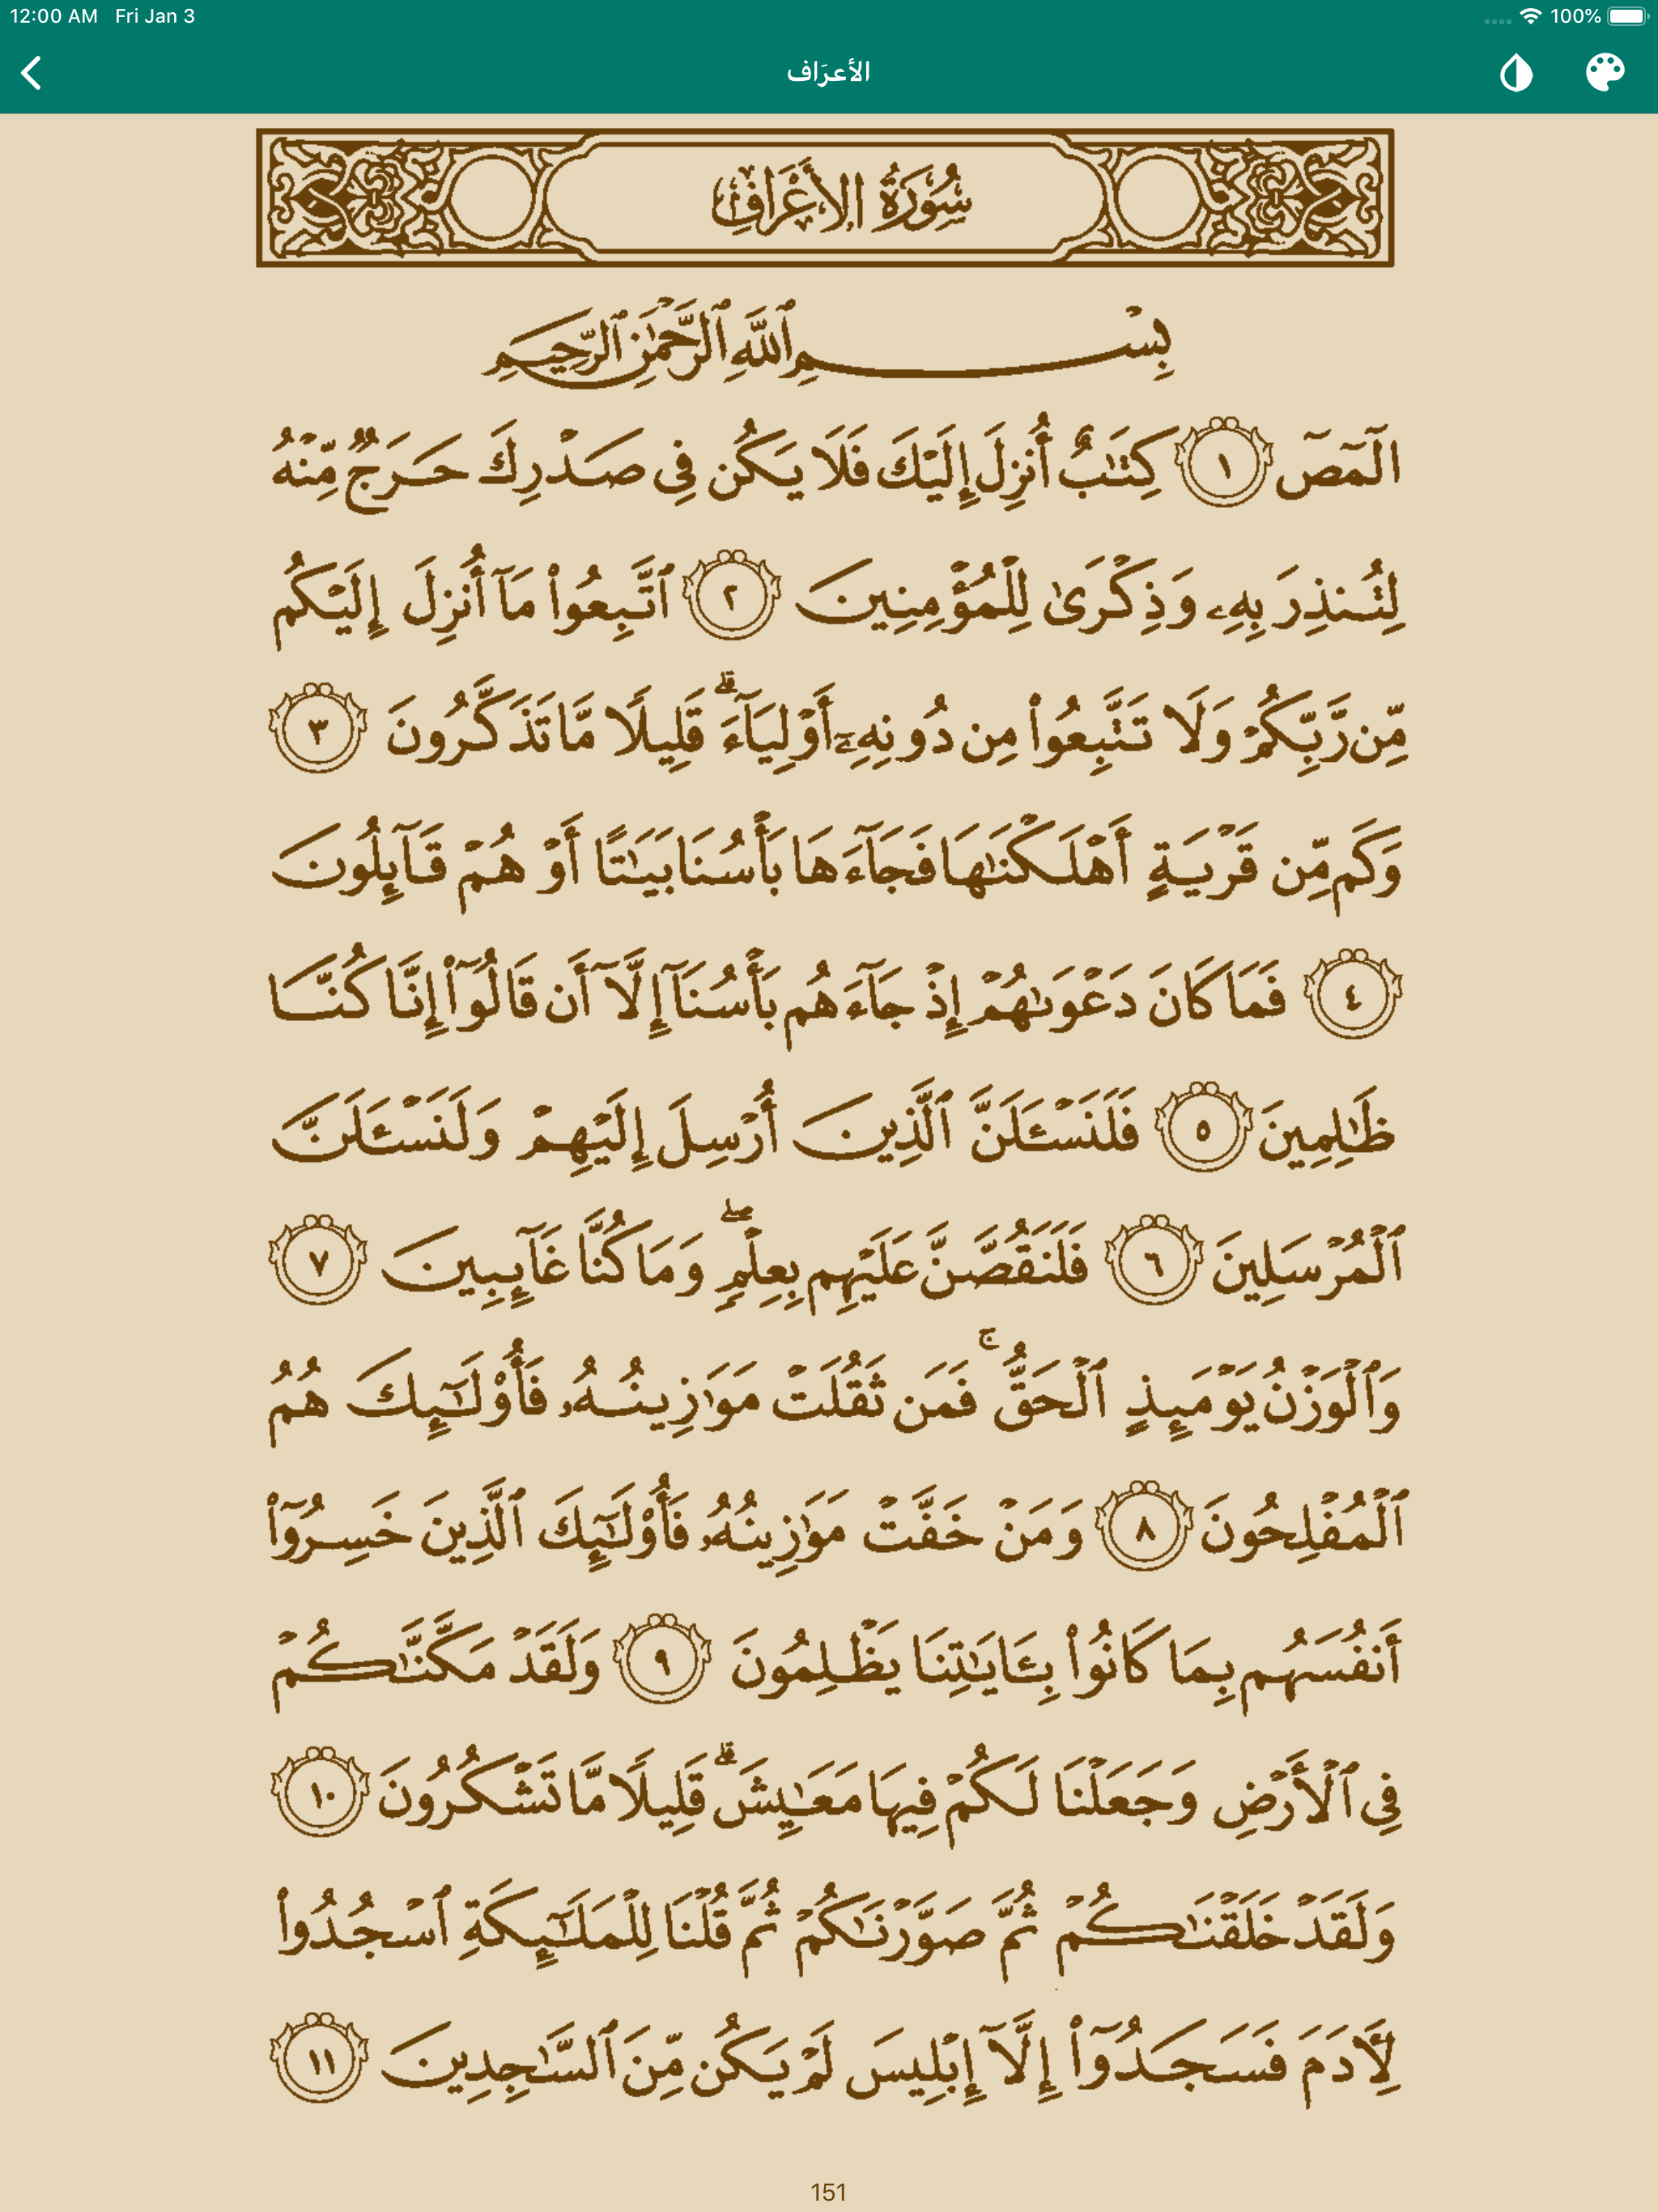 12:00 AM Fri Jan 3 100%
الأعرَاف
سُورَةُ الأَعْرَافِ
بِسْمِ ٱللَّهِ ٱلرَّحْمَٰنِ ٱلرَّحِيمِ
الٓمٓصٓ ١ كِتَٰبٌ أُنزِلَ إِلَيْكَ فَلَا يَكُن فِى صَدْرِكَ حَرَجٌ مِّنْهُ
لِتُنذِرَ بِهِۦ وَذِكْرَىٰ لِلْمُؤْمِنِينَ ٢ ٱتَّبِعُوا۟ مَآ أُنزِلَ إِلَيْكُم
مِّن رَّبِّكُمْ وَلَا تَتَّبِعُوا۟ مِن دُونِهِۦٓ أَوْلِيَآءَ ۗ قَلِيلًا مَّا تَذَكَّرُونَ ٣
وَكَم مِّن قَرْيَةٍ أَهْلَكْنَٰهَا فَجَآءَهَا بَأْسُنَا بَيَٰتًا أَوْ هُمْ قَآئِلُونَ
٤ فَمَا كَانَ دَعْوَىٰهُمْ إِذْ جَآءَهُم بَأْسُنَآ إِلَّآ أَن قَالُوٓا۟ إِنَّا كُنَّا
ظَٰلِمِينَ ٥ فَلَنَسْـَٔلَنَّ ٱلَّذِينَ أُرْسِلَ إِلَيْهِمْ وَلَنَسْـَٔلَنَّ
ٱلْمُرْسَلِينَ ٦ فَلَنَقُصَّنَّ عَلَيْهِم بِعِلْمٍ ۖ وَمَا كُنَّا غَآئِبِينَ ٧
وَٱلْوَزْنُ يَوْمَئِذٍ ٱلْحَقُّ ۚ فَمَن ثَقُلَتْ مَوَٰزِينُهُۥ فَأُو۟لَٰٓئِكَ هُمُ
ٱلْمُفْلِحُونَ ٨ وَمَنْ خَفَّتْ مَوَٰزِينُهُۥ فَأُو۟لَٰٓئِكَ ٱلَّذِينَ خَسِرُوٓا۟
أَنفُسَهُم بِمَا كَانُوا۟ بِـَٔايَٰتِنَا يَظْلِمُونَ ٩ وَلَقَدْ مَكَّنَّٰكُمْ
فِى ٱلْأَرْضِ وَجَعَلْنَا لَكُمْ فِيهَا مَعَٰيِشَ ۗ قَلِيلًا مَّا تَشْكُرُونَ ١٠
وَلَقَدْ خَلَقْنَٰكُمْ ثُمَّ صَوَّرْنَٰكُمْ ثُمَّ قُلْنَا لِلْمَلَٰٓئِكَةِ ٱسْجُدُوا۟
لِـَٔادَمَ فَسَجَدُوٓا۟ إِلَّآ إِبْلِيسَ لَمْ يَكُن مِّنَ ٱلسَّٰجِدِينَ ١١
151